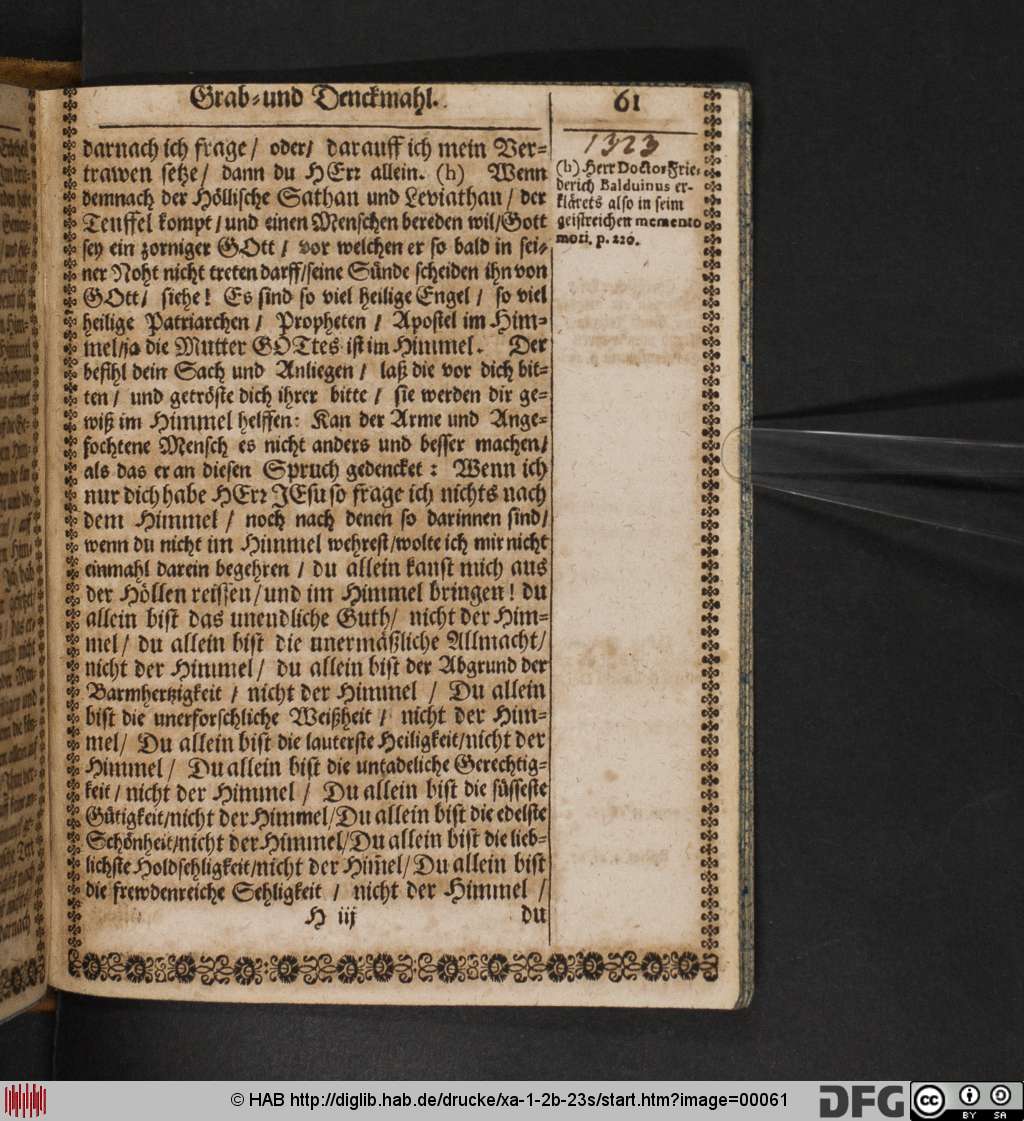 Grab-und Denckmahl.
61
1323
darnach ich frage / oder / darauff ich mein Ver-
trawen setze / dann du HErr allein. (h) Wenn
demnach der Höllische Sathan und Leviathan / der
Teuffel kompt / und einen Menschen bereden wil / Gott
sey ein zorniger GOtt / vor welchen er so bald in sei-
ner Noht nicht treten darff / seine Sünde scheiden ihn von
GOtt / siehe! Es sind so viel heilige Engel / so viel
heilige Patriarchen / Propheten / Apostel im Him-
mel / ja die Mutter GOTtes ist im Himmel. Der
befihl dein Sach und Anliegen / laß die vor dich bit-
ten / und getröste dich ihrer bitte / sie werden dir ge-
wiß im Himmel helffen: Kan der Arme und Ange-
fochtene Mensch es nicht anders und besser machen /
als das er an diesen Spruch gedencket: Wenn ich
nur dich habe HErr JEsu so frage ich nichts nach
dem Himmel / noch nach denen so darinnen sind /
wenn du nicht im Himmel wehrest / wolte ich mir nicht
einmahl darein begehren / du allein kanst mich aus
der Höllen reissen / und im Himmel bringen! du
allein bist das unendliche Guth / nicht der Him-
mel / du allein bist die unermäßliche Allmacht /
nicht der Himmel / du allein bist der Abgrund der
Barmhertzigkeit / nicht der Himmel / Du allein
bist die unerforschliche Weißheit / nicht der Him-
mel / Du allein bist die lauterste Heiligkeit / nicht der
Himmel / Du allein bist die untadeliche Gerechtig-
keit / nicht der Himmel / Du allein bist die süsseste
Gütigkeit / nicht der Himmel / Du allein bist die edelste
Schönheit / nicht der Himmel / Du allein bist die lieb-
lichste Holdsehligkeit / nicht der Him̃el / Du allein bist
die frewdenreiche Sehligkeit / nicht der Himmel /
H iij
du
(h) Herr Doctor Frie-
derich Balduinus er-
klärets also in seim
geistreichen memento
mori. p. 220.
© HAB http://diglib.hab.de/drucke/xa-1-2b-23s/start.htm?image=00061
DFG
cc
BY SA